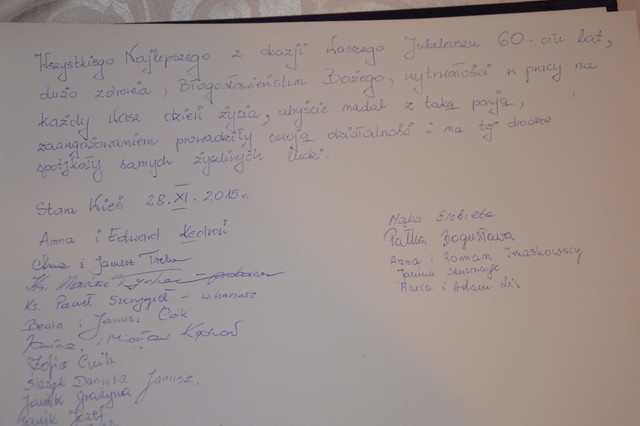 Wszystkiego Najlepszego z okazji Waszego Jubileuszu 60-ciu lat,
dużo zdrowia, Błogosławieństwa Bożego, wytrwałości w pracy na
każdy Wasz dzień życia, abyście nadal z taką pasją,
zaangażowaniem prowadziły swoją działalność i na tej drodze
spotykały samych życzliwych ludzi.
Stara Wieś 28.XI.2015r.
Anna i Edward Kędroń
i Janusz
Ks.
Ks. Paweł Szczygieł - wikariusz
Beata i Janusz Ćwik
Janina, Mirosław
Zofia Ćwik
Danuta, Janusz,
Grażyna
Józef
Mąka Elżbieta
Pałka Bogusława
Anna i Roman
Janina
Maria i Adam Lis